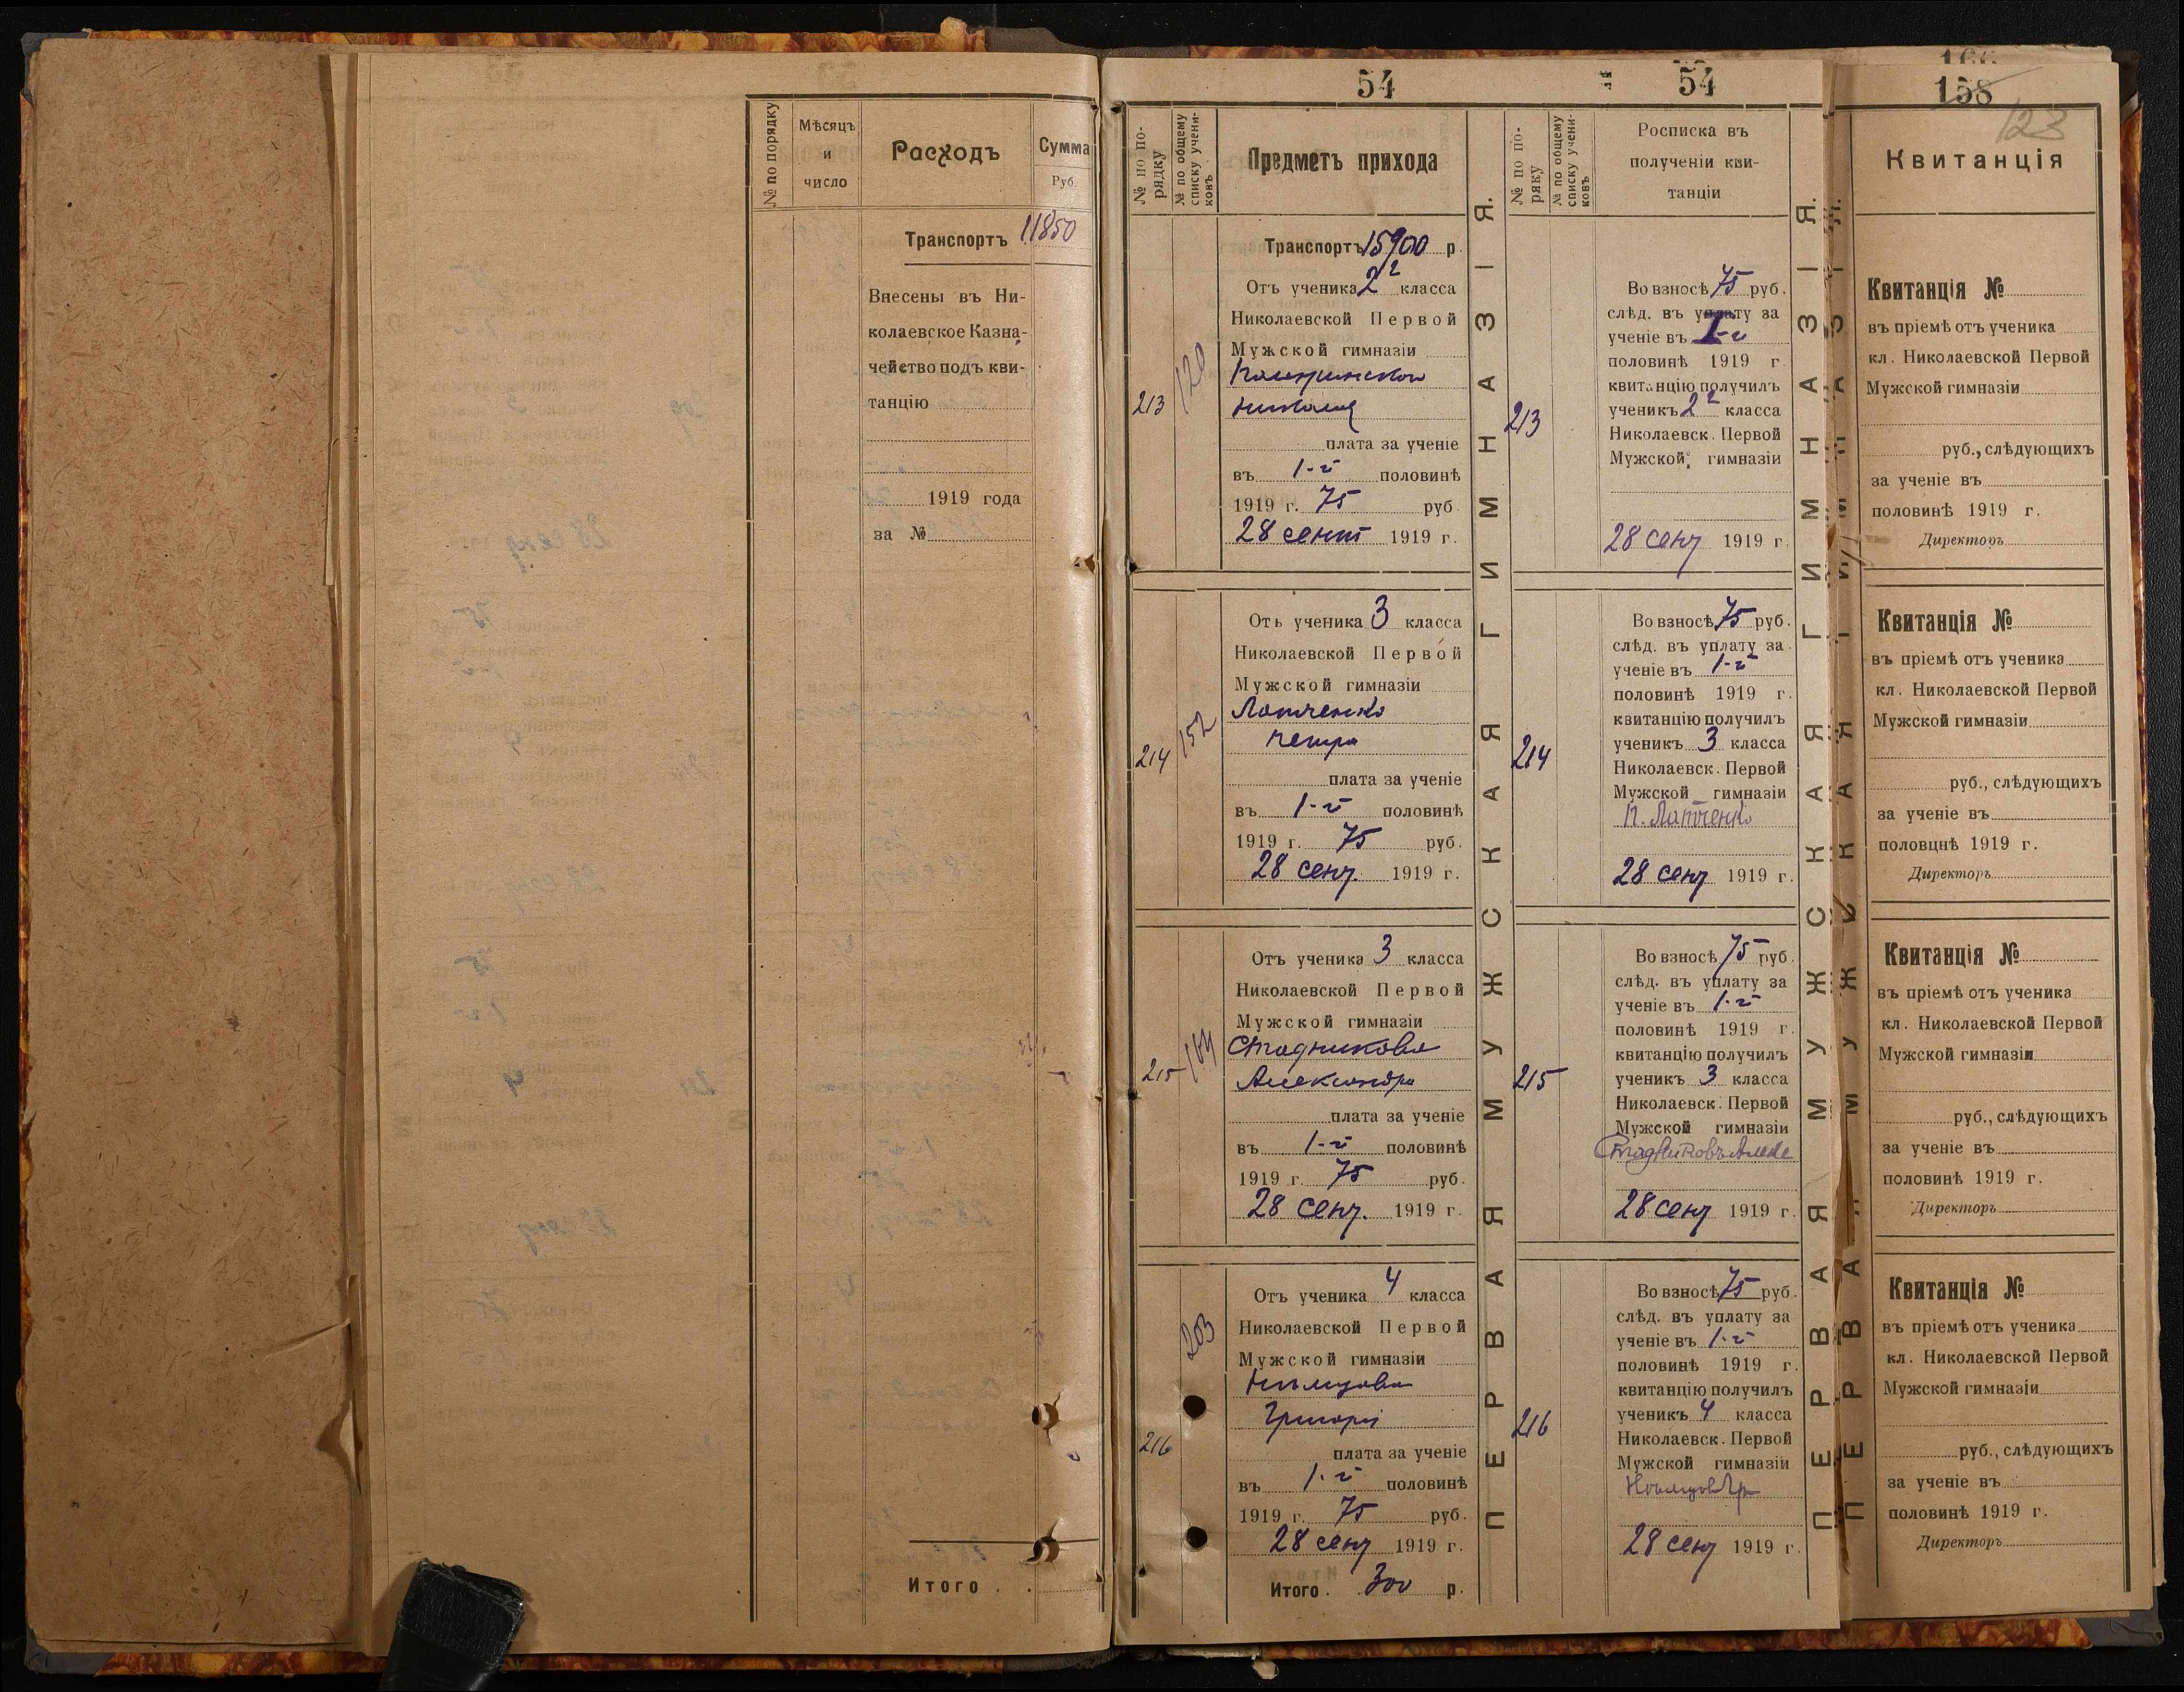 № по порядку
Мѣсяцъ
и
число
Расходъ
Сумма
Руб.
Транспортъ 11850
Внесены въ Ни-
колаевское Казна-
чейство подъ кви-
танцію
1919 года
за №
Итого . .
54
№ по по-
рядку
№ по общему
списку учени-
ковъ
Предметъ прихода
Транспортъ 15900 р.
213
120
Отъ ученика 2² класса
Николаевской Первой
Мужской гимназіи
Николая
плата за ученіе
въ 1-й половинѣ
1919 г. 75 руб.
28 сент 1919 г.
214
152
Отъ ученика 3 класса
Николаевской Первой
Мужской гимназіи
Латченко
Петра
плата за ученіе
въ 1-й половинѣ
1919 г. 75 руб.
28 сент. 1919 г.
215
Отъ ученика 3 класса
Николаевской Первой
Мужской гимназіи
Стадникова
Александра
плата за ученіе
въ 1-й половинѣ
1919 г. 75 руб.
28 сент. 1919 г.
216
203
Отъ ученика 4 класса
Николаевской Первой
Мужской гимназіи
Нѣмцова
Григорія
плата за ученіе
въ 1-й половинѣ
1919 г. 75 руб.
28 сент 1919 г.
Итого . 300 р.
ПЕРВАЯ МУЖСКАЯ ГИМНАЗІЯ.
54
№ по по-
ряку
№ по общему
списку учени-
ковъ
Росписка въ
полученіи кви-
танціи
213
Во взносѣ 75 руб.
слѣд. въ уплату за
ученіе въ 1-й
половинѣ 1919 г.
квитанцію получилъ
ученикъ 2² класса
Николаевск. Первой
Мужской гимназіи
28 сент 1919 г.
214
Во взносѣ 75 руб.
слѣд. въ уплату за
ученіе въ 1-й
половинѣ 1919 г.
квитанцію получилъ
ученикъ 3 класса
Николаевск. Первой
Мужской гимназіи
П. Латченко
28 сент 1919 г.
215
Во взносѣ 75 руб.
слѣд. въ уплату за
ученіе въ 1-й
половинѣ 1919 г.
квитанцію получилъ
ученикъ 3 класса
Николаевск. Первой
Мужской гимназіи
Стадниковъ Алекс
28 сент 1919 г.
216
Во взносѣ 75 руб.
слѣд. въ уплату за
ученіе въ 1-й
половинѣ 1919 г.
квитанцію получилъ
ученикъ 4 класса
Николаевск. Первой
Мужской гимназіи
Нѣмцов Гр
28 сент 1919 г.
ПЕРВАЯ МУЖСКАЯ ГИМНАЗІЯ.
158
123
Квитанція
Квитанція №
въ пріемѣ отъ ученика
кл. Николаевской Первой
Мужской гимназіи
руб., слѣдующихъ
за ученіе въ
половинѣ 1919 г.
Директоръ
Квитанція №
въ пріемѣ отъ ученика
кл. Николаевской Первой
Мужской гимназіи
руб., слѣдующихъ
за ученіе въ
половцнѣ 1919 г.
Директоръ
Квитанція №
въ пріемѣ отъ ученика
кл. Николаевской Первой
Мужской гимназіи
руб., слѣдующихъ
за ученіе въ
половинѣ 1919 г.
Директоръ
Квитанція №
въ пріемѣ отъ ученика
кл. Николаевской Первой
Мужской гимназіи
руб., слѣдующихъ
за ученіе въ
половинѣ 1919 г.
Директоръ